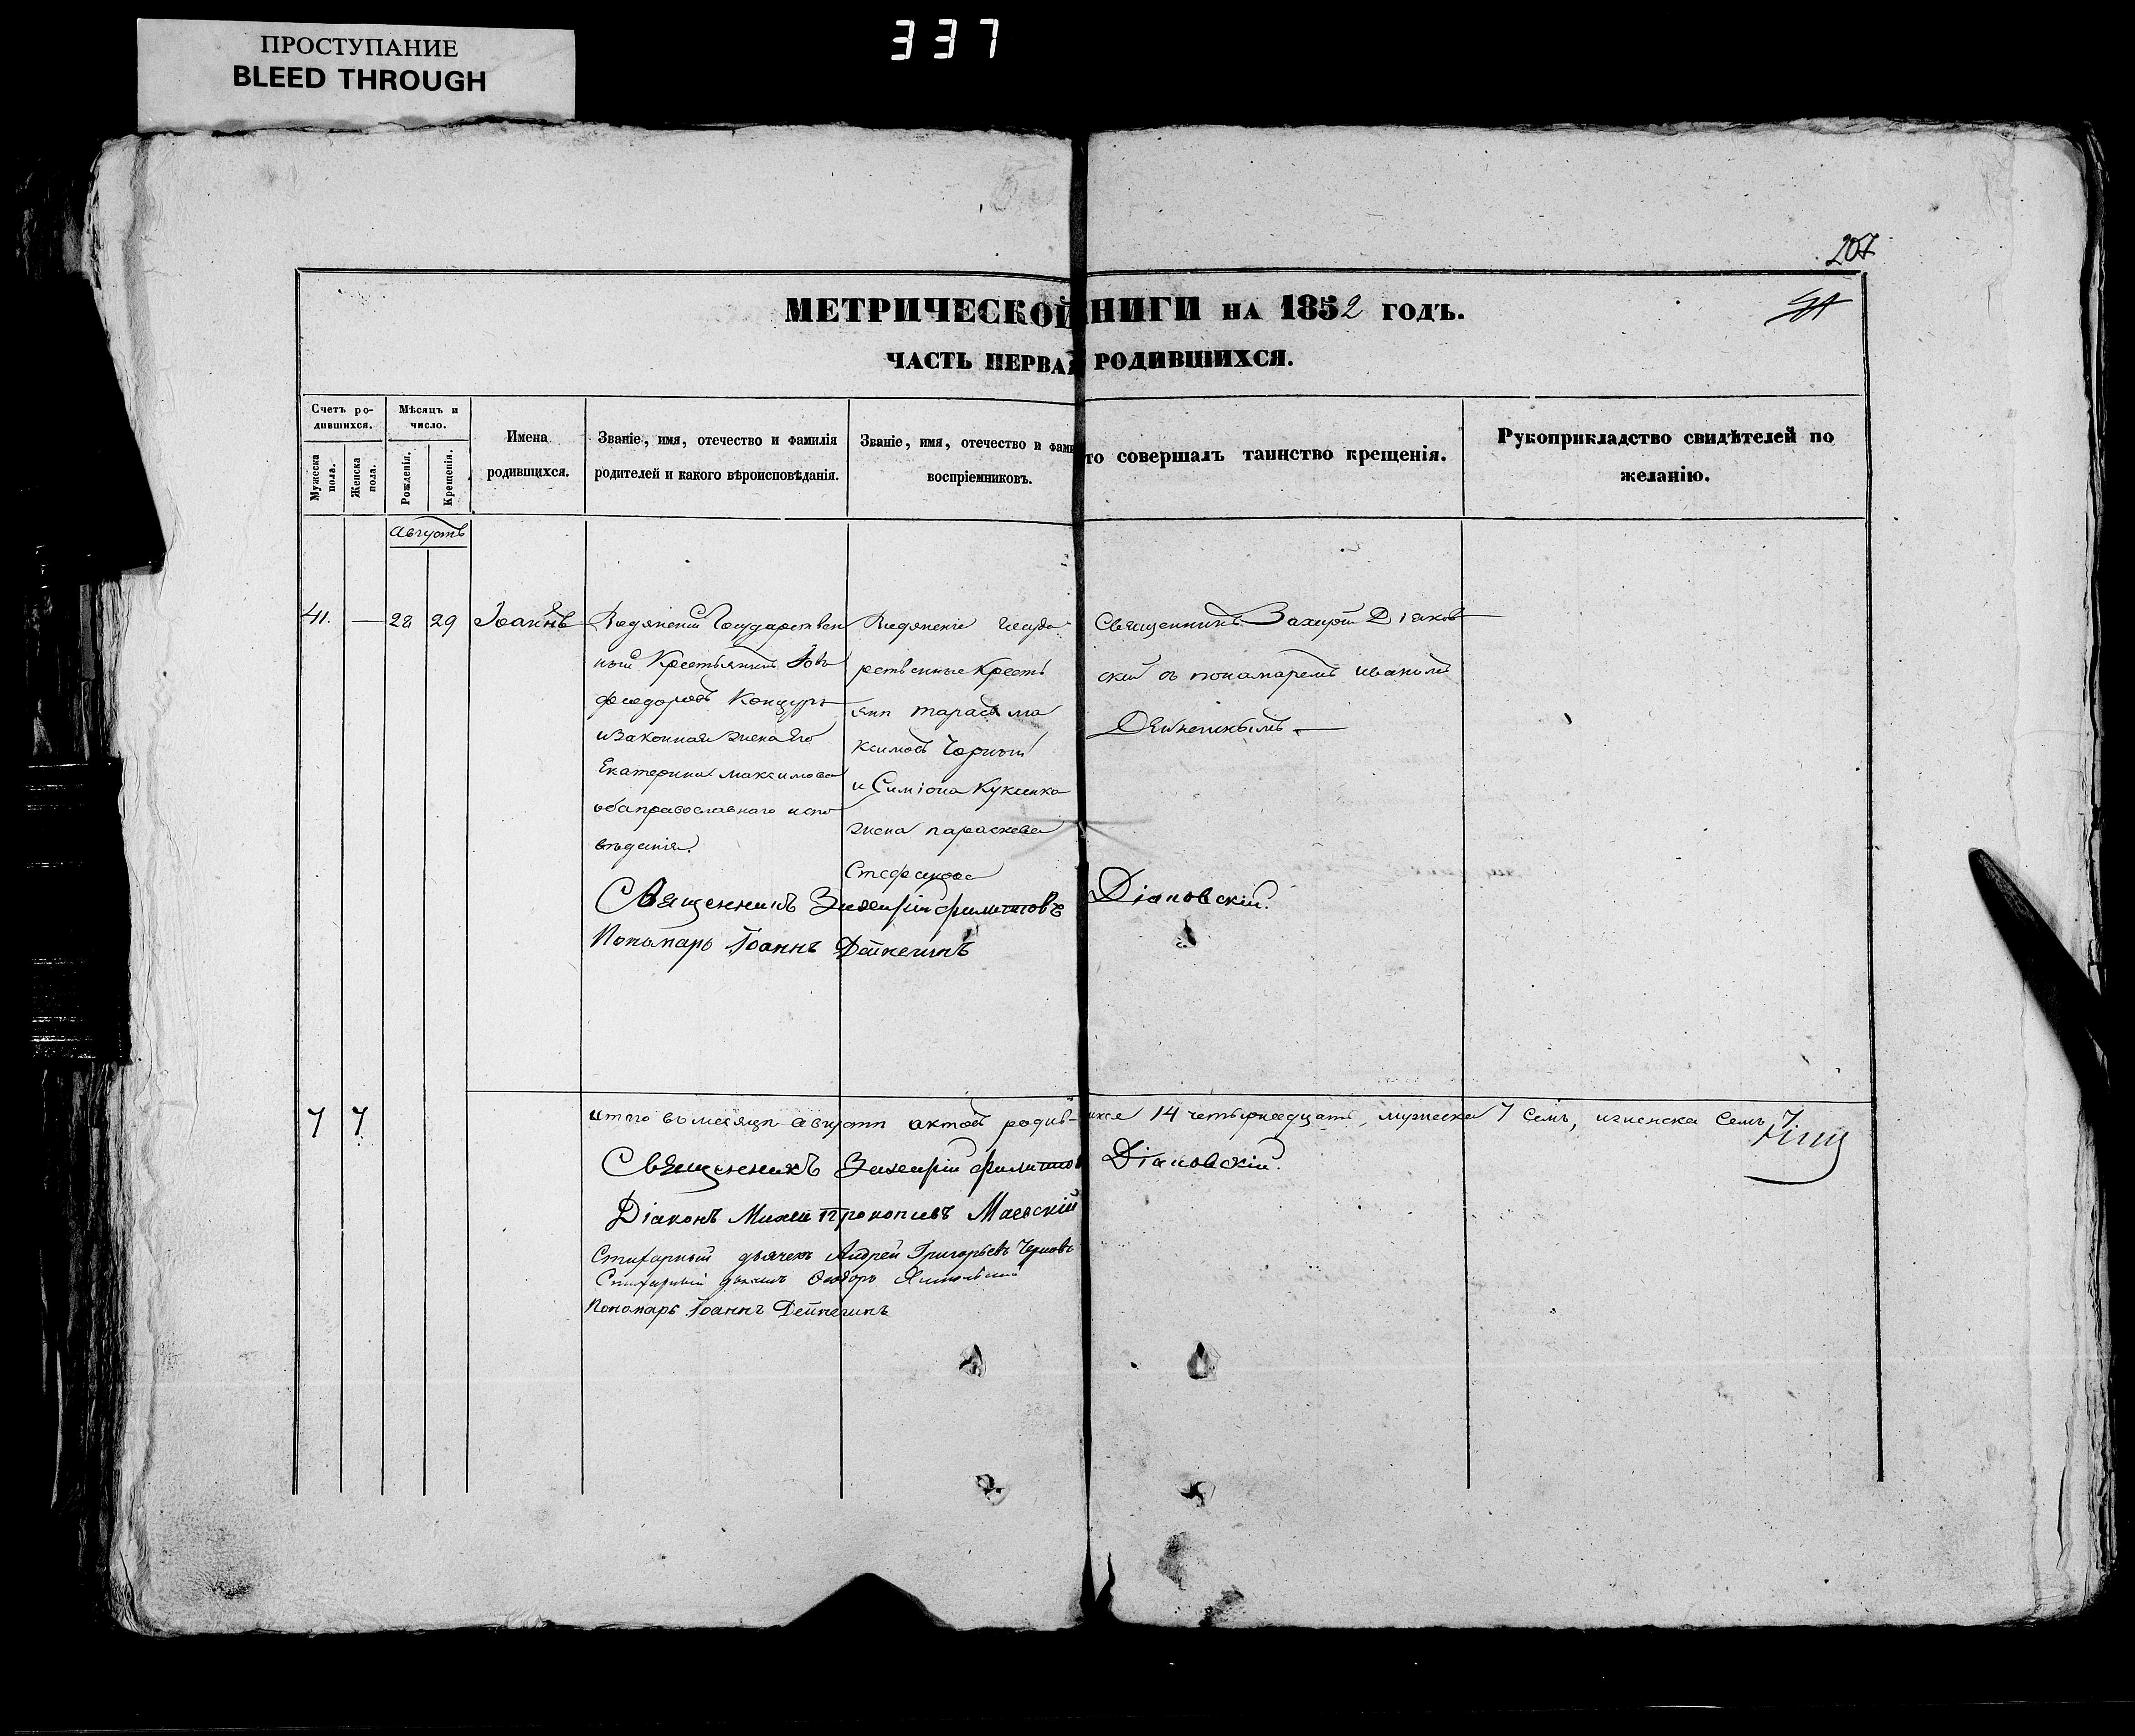 ПРОСТУПАНИЕ
BLEED THROUGH
337
207
МЕТРИЧЕСКОЙ НИГИ НА 1852 ГОДЪ.
ЧАСТЬ ПЕРВАЯ РОДИВШИХСЯ.
Счетъ ро-
дившихся.
Мужеска пола.
Женска пола.
Мѣсяцъ и
число.
Рожденія.
Крещенія.
Имена
родившихся.
Званіе, имя, отечество и фамилія
родителей и какого вѣроисповѣданія.
Званіе, имя, отечество и фами
воспріемниковъ.
то совершалъ таинство крещенія.
Рукоприкладство свидѣтелей по
желанію.
Августъ
41. — 28 29 Іоаннъ
Государствен
ный Крестьянинъ
феодоровъ Концуръ
и Законная жена Его
Екатерина Максимова
оба православнаго испо
вѣданія.
рственные Кресть
яни Тарасъ Ма
ксимовъ Чорный
и Симіона Куксенка
жена параскева
Стефанова
Священникъ Захарій Діяков
скій съ пономаремъ Иваномъ
Дейнекинымъ
Священникъ Захарій Филиповъ Діаковскій.
Пономарь Іоаннъ Дейнекинъ
7 7
итого въ месяцѣ августѣ актовъ родив- шихся 14 четырнадцать, мужеска 7 Семь, и женска Семь 7.
Священникъ Захарій Филипов Діаковскій.
Діаконъ Прокопіевъ Маевскій
Стихарный дьячекъ Андрей Григорьевъ Черновъ
Стихарный дьячекъ Феодоръ
Пономарь Іоаннъ Дейнекинъ